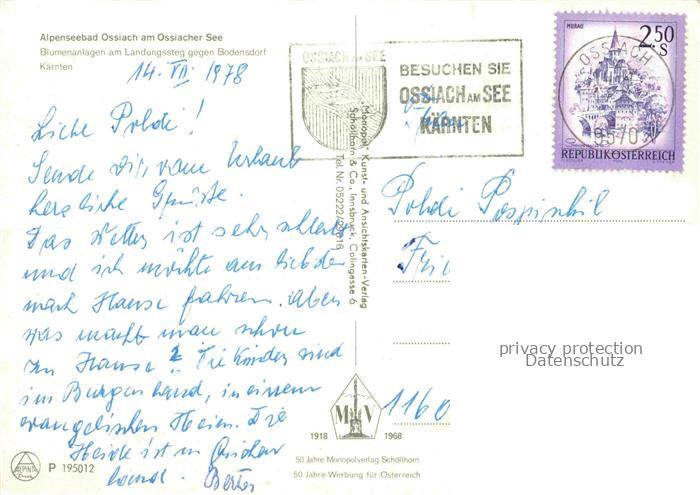 Alpenseebad Ossiach am Ossiacher See
Blumenanlagen am Landungssteg gegen Bodensdorf
Kärnten
14. VII. 1978
Liebe Poldi!
Sende dir vom Urlaub
herzliche Grüsse.
Das Wetter ist sehr schlecht
und ich möchte am liebsten
nach Hause fahren. Aber
was macht man schon
zu Hause? Die Kinder sind
im Burgenland, in einem
evangelischen Heim. Die
Heide ist in Griechen
land.
P 195012
ALPINA
Druck
OSSIACH AM SEE
BESUCHEN SIE
OSSIACH AM SEE
KÄRNTEN
MURAU
2.50
S
OSSIACH
9570
REPUBLIK ÖSTERREICH
Monopol Kunst- und Ansichtskarten-Verlag
Schöllhorn & Co., Innsbruck, Colingasse 6
Tel. Nr. 05222/
Poldi Pospischil
1160
privacy protection
Datenschutz
M V
1918 1968
50 Jahre Monopolverlag Schöllhorn
50 Jahre Werbung für Österreich